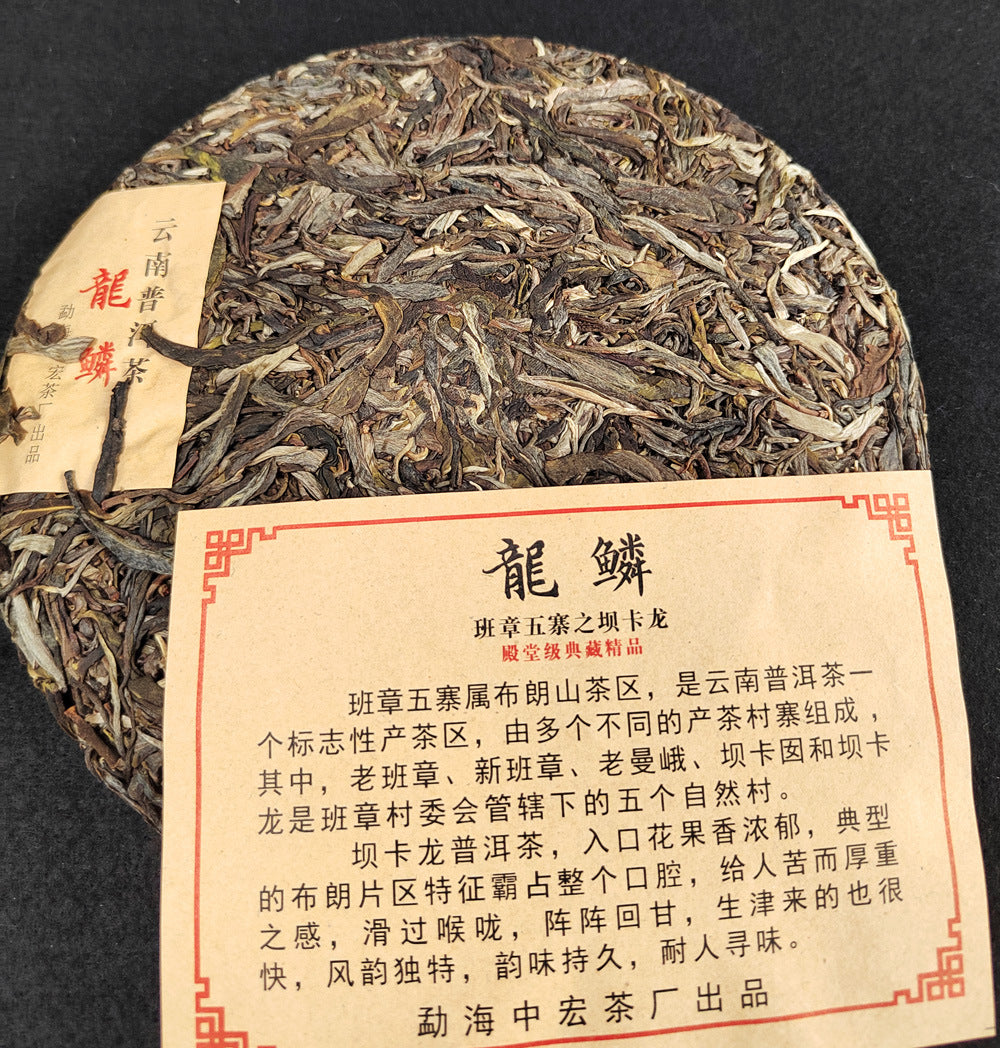 云南普洱茶
龍鳞
勐海 宏茶厂出品
龍鳞
班章五寨之坝卡龙
殿堂级典藏精品
班章五寨属布朗山茶区，是云南普洱茶一
个标志性产茶区，由多个不同的产茶村寨组成，
其中，老班章、新班章、老曼峨、坝卡囡和坝卡
龙是班章村委会管辖下的五个自然村。
坝卡龙普洱茶，入口花果香浓郁，典型
的布朗片区特征霸占整个口腔，给人苦而厚重
之感，滑过喉咙，阵阵回甘，生津来的也很
快，风韵独特，韵味持久，耐人寻味。
勐海中宏茶厂出品